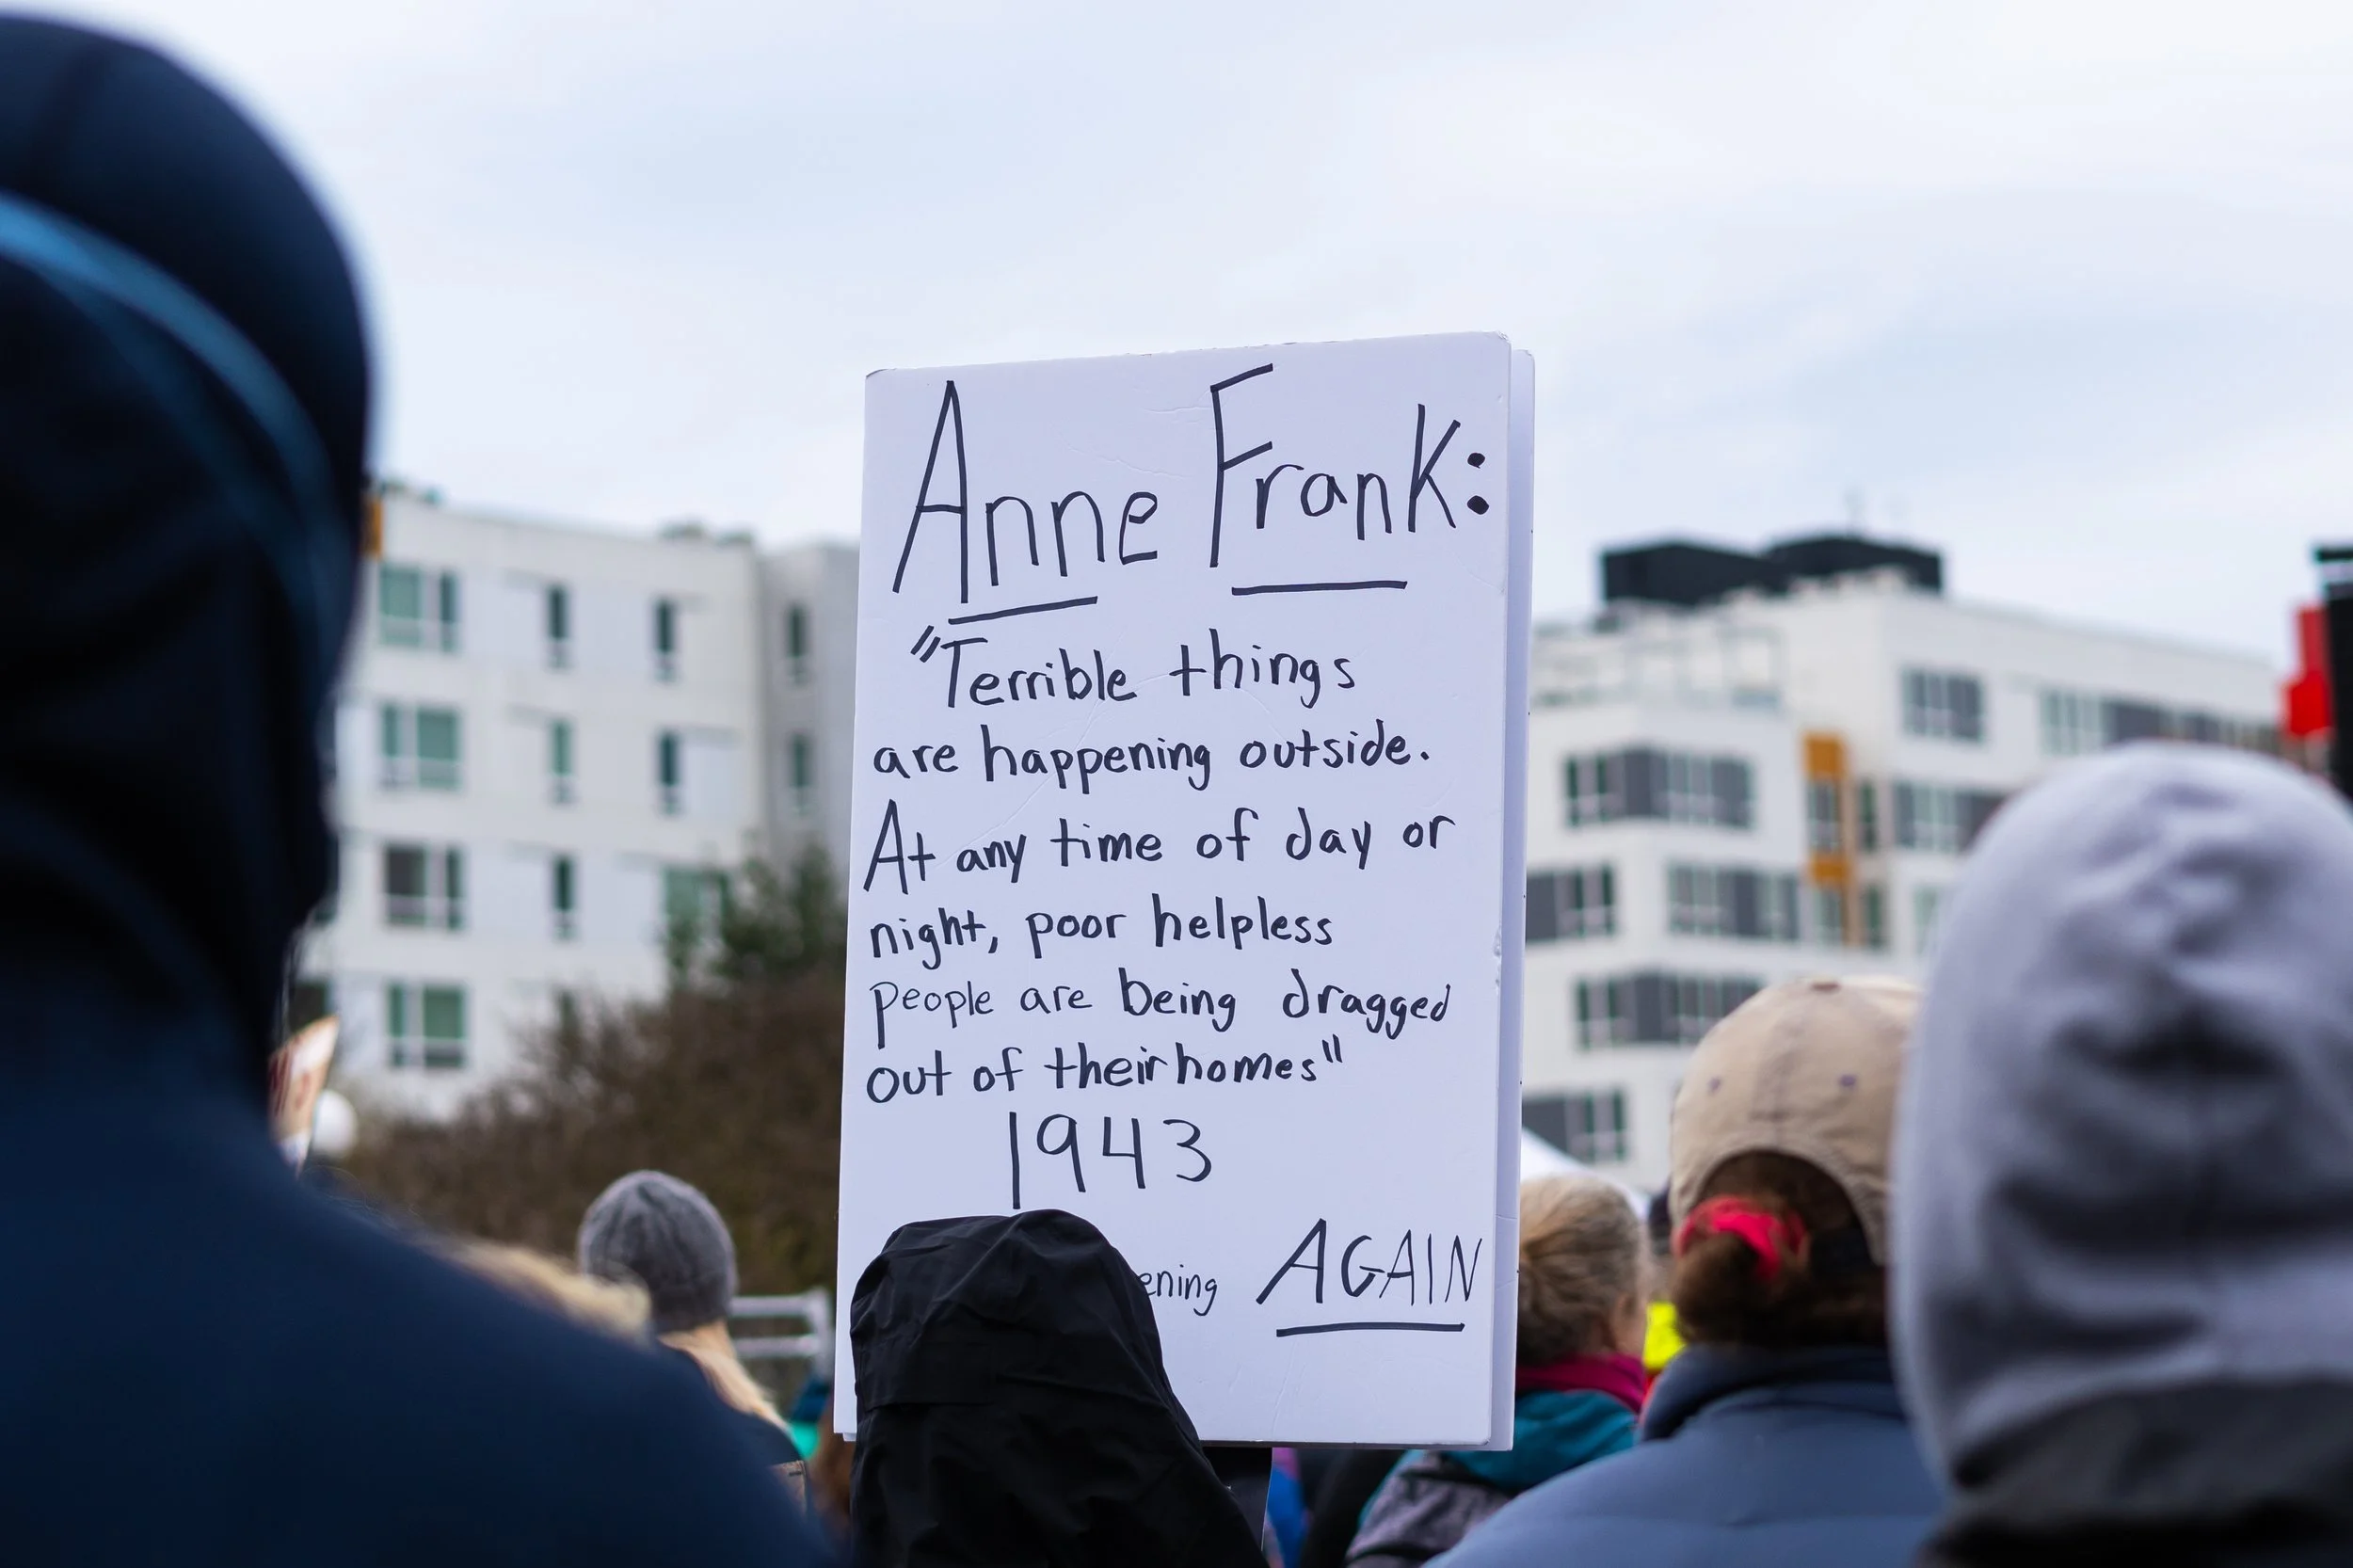 Anne Frank:
"Terrible things
are happening outside.
At any time of day or
night, poor helpless
people are being dragged
out of their homes"
1943
ening AGAIN